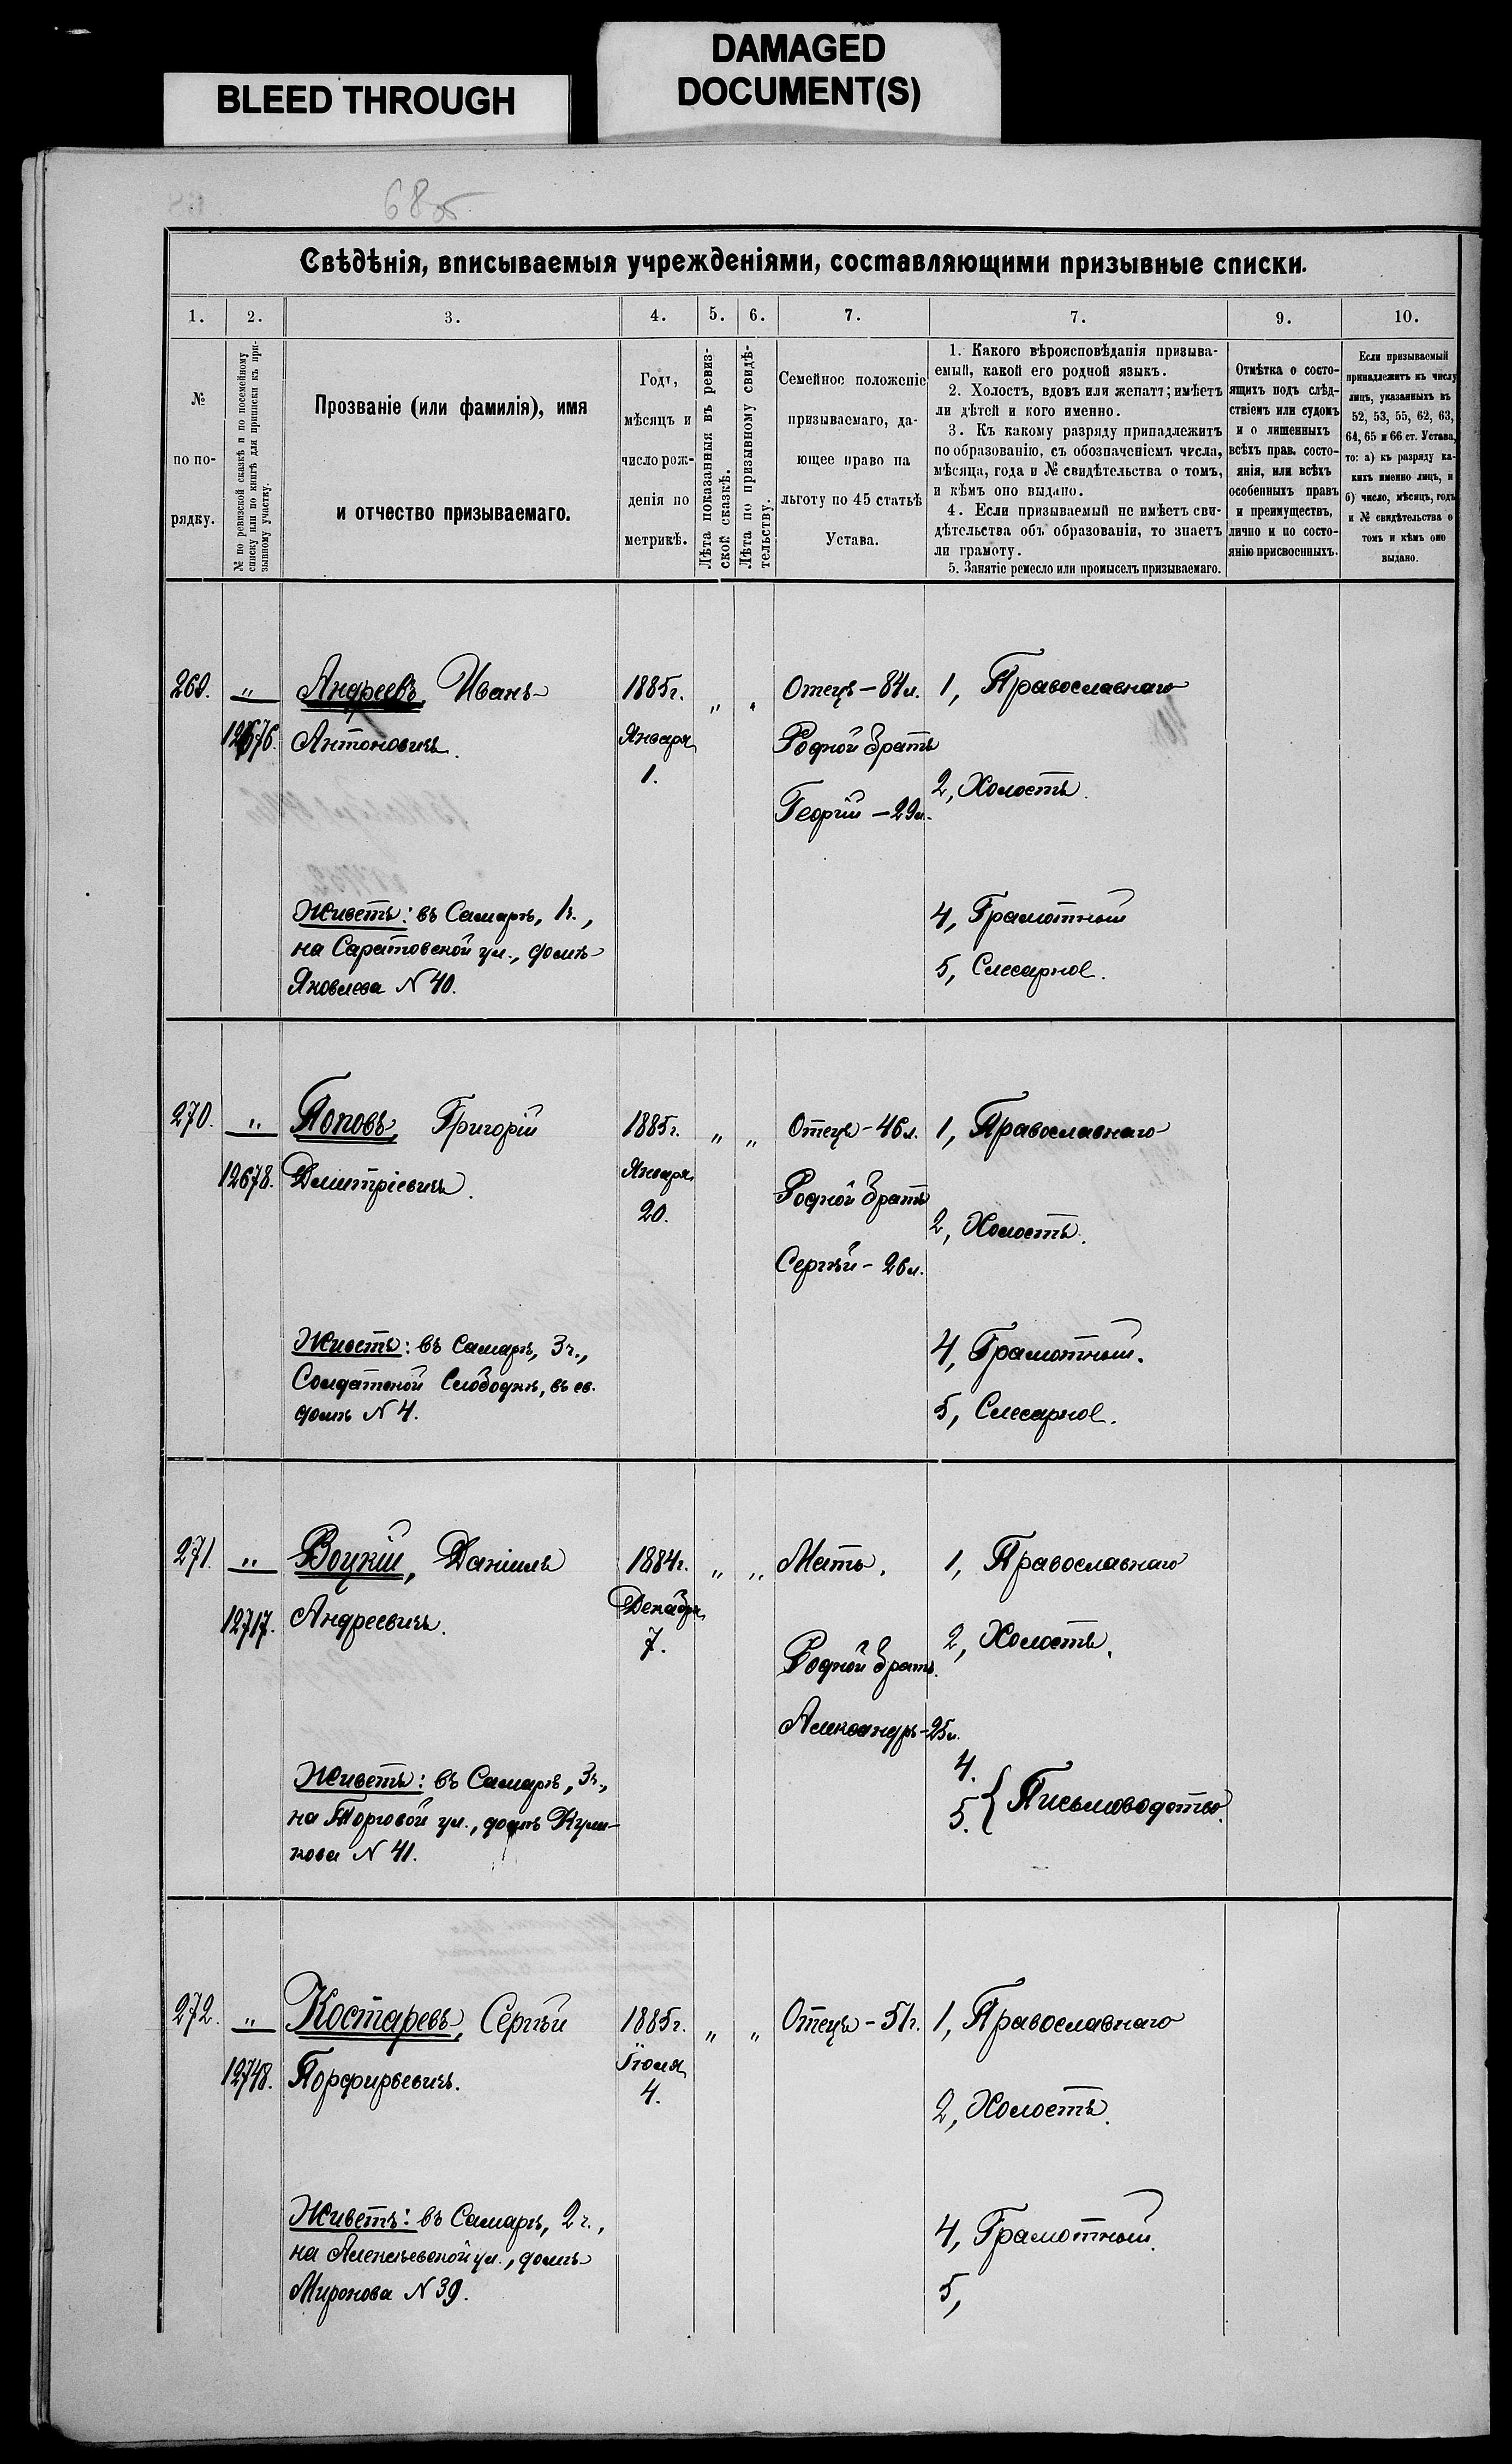 BLEED THROUGH
DAMAGED
DOCUMENT(S)
68 об
Свѣдѣнія, вписываемыя учрежденіями, составляющими призывные списки.
1.
2.
3.
4.
5.
6.
7.
7.
9.
10.
№
по по-
рядку.
№ по ревизской сказкѣ и по посемейному
списку или по книгѣ для приписки къ при-
зывному участку.
Прозваніе (или фамилія), имя
и отчество призываемаго.
Годъ,
мѣсяцъ и
число рож-
денія по
метрикѣ.
Лѣта показанныя въ ревиз-
ской сказкѣ.
Лѣта по призывному свидѣ-
тельству.
Семейное положеніе
призываемаго, да-
ющее право на
льготу по 45 статьѣ
Устава.
1. Какого вѣроисповѣданія призыва-
емый, какой его родной языкъ.
2. Холостъ, вдовъ или женатъ; имѣетъ
ли дѣтей и кого именно.
3. Къ какому разряду принадлежитъ
по образованію, съ обозначеніемъ числа,
мѣсяца, года и № свидѣтельства о томъ,
и кѣмъ оно выдано.
4. Если призываемый не имѣетъ сви-
дѣтельства объ образованіи, то знаетъ
ли грамоту.
5. Занятіе ремесло или промыселъ призываемаго.
Отмѣтка о состо-
ящихъ подъ слѣд-
ствіемъ или судомъ
и о лишенныхъ
всѣхъ прав. состо-
янія, или всѣхъ
особенныхъ правъ
и преимуществъ,
лично и по состо-
янію присвоенныхъ.
Если призываемый
принадлежитъ къ числу
лицъ, указанныхъ въ
52, 53, 55, 62, 63,
64, 65 и 66 ст. Устава,
то: а) къ разряду ка-
кихъ именно лицъ, и
б) число, мѣсяцъ, годъ
и № свидѣтельства о
томъ и кѣмъ оно
выдано.
269. " Андреевъ, Иванъ 1885г. " " Отецъ – 84 л. 1, Православнаго
12676. Антоновичъ. Января Родной братъ
1. 2, Холостъ.
Георгій – 29 л.
Живетъ: въ Самарѣ, 1ч., 4, Грамотный
на Саратовской ул., домъ
5, Слесарное.
Яковлева N 40.
270. " Поповъ, Григорій 1885г. " " Отецъ – 46 л. 1, Православнаго
12678. Димитріевичъ. Января Родной братъ
20. 2, Холостъ.
Сергѣй – 26 л.
Живетъ: въ Самарѣ, 3ч., 4, Грамотный.
Солдатской Слободкѣ, въ св.
домѣ N 4. 5, Слесарное.
271. " Воцкій, Даніилъ 1884г. " " Мать. 1, Православнаго
12717. Андреевичъ. Декабря
7. Родной братъ 2, Холостъ.
Александръ – 25 л.
Живетъ: въ Самарѣ, 3ч., 4.
на Торговой ул., домъ Кули- 5. } Письмоводство.
кова N 41.
272. " Костаревъ, Сергѣй 1885г. " " Отецъ – 51 г. 1, Православнаго
12748. Порфирьевичъ. Іюля
4. 2, Холостъ.
Живетъ: въ Самарѣ, 2ч., 4, Грамотный.
на Алексѣевской ул., домъ
Миронова N 39. 5,